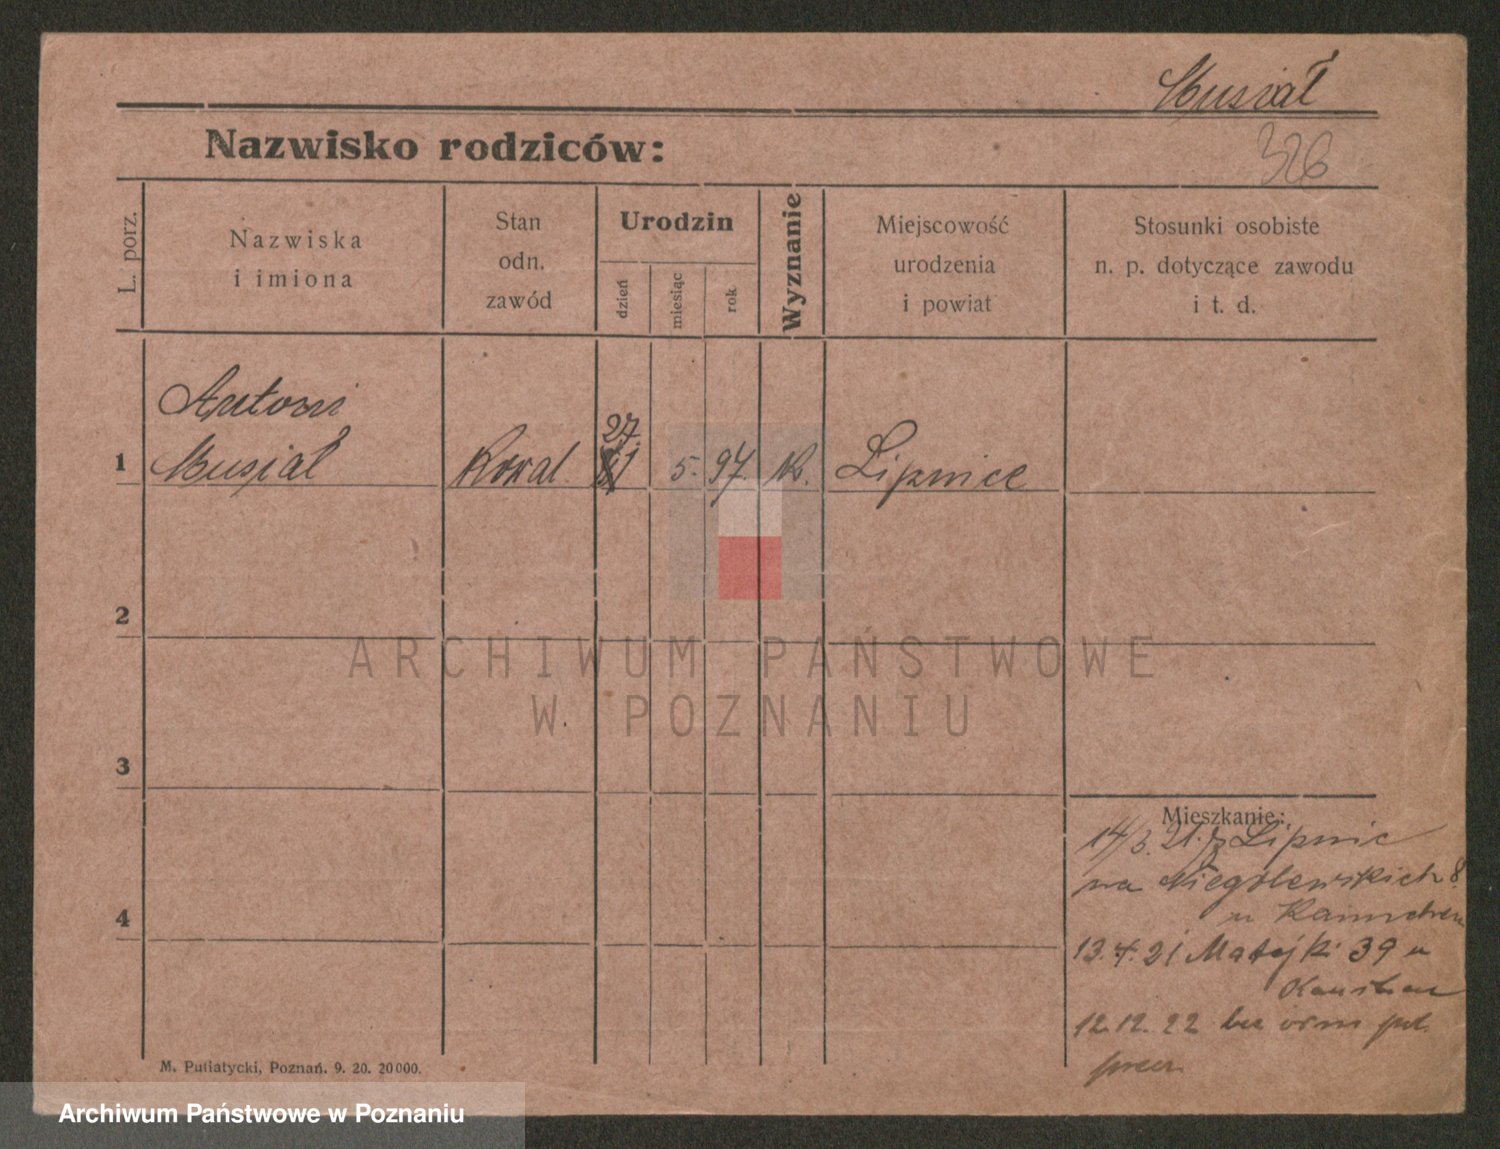 Musiał
326
Nazwisko rodziców:
L. porz.
Nazwiska
i imiona
Stan
odn.
zawód
Urodzin
dzień
miesiąc
rok
Wyznanie
Miejscowość
urodzenia
i powiat
Stosunki osobiste
n. p. dotyczące zawodu
i t. d.
Antoni
27.
1 Musiał Kowal 5. 97. K. Lipnice
2
ARCHIWUM PAŃSTWOWE
W POZNANIU
3
Mieszkanie:
14/3.21. z Lipnic
na Niegolewskich 8
u
4
13.4.21 Matejki 39 u
12.12.22
M. Putiatycki, Poznań. 9. 20. 20000.
Archiwum Państwowe w Poznaniu